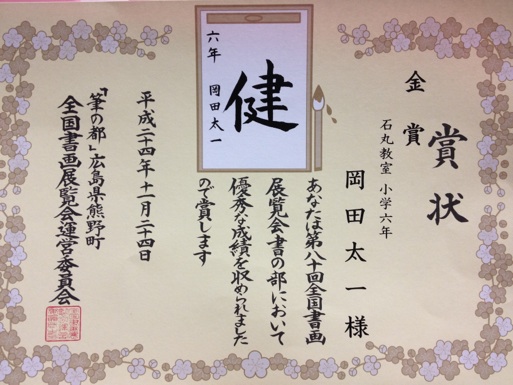 賞状
金賞
石丸教室 小学六年
岡田太一様
あなたは第八十回全国書画
展覧会書の部において
優秀な成績を収められました
ので賞します
健
六年 岡田太一
平成二十四年十一月二十四日
「筆の都」広島県熊野町
全国書画展覧会運営委員会